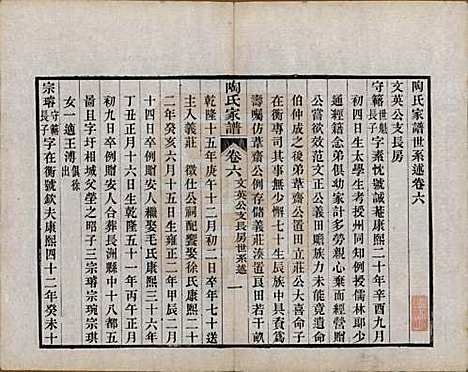 陶氏家譜世系述卷六
文英公支長房
守籍世魁長子字素忱號誠菴康熙二十年辛酉九月
初四日生太學生考授州同敕贈儒林郎少
通經籍念弟俱幼家計多勞親心棄而經營贈
公嘗欲效范文正公義田贍族力未能竟遺命
伯仲成之後弟葦齋公置田立莊公大喜命子
在衡專司其事無少懈七十生辰族中具賚爲
壽囑仿葦齋公例存儲義莊湊置良田若干畝
陶氏家譜
卷六
文英公支長房世系述
一
乾隆十五年庚午十二月初二日卒年七十送
主入義莊
徵仕公祠配饗娶徐氏康熙二十
二年癸亥六月十五日生雍正二年甲辰二月
十四日卒贈安人繼娶毛氏康熙三十六年
丁丑正月十六日生乾隆五十一年丙午正月
初九日卒贈安人合葬長洲縣中十八都五
啚且字圩相城父塋之昭子三宗璿宗琬宗琪
女一適王溥出俱徐
宗璿守籍長子字在衡號欽夫康熙四十二年癸未十